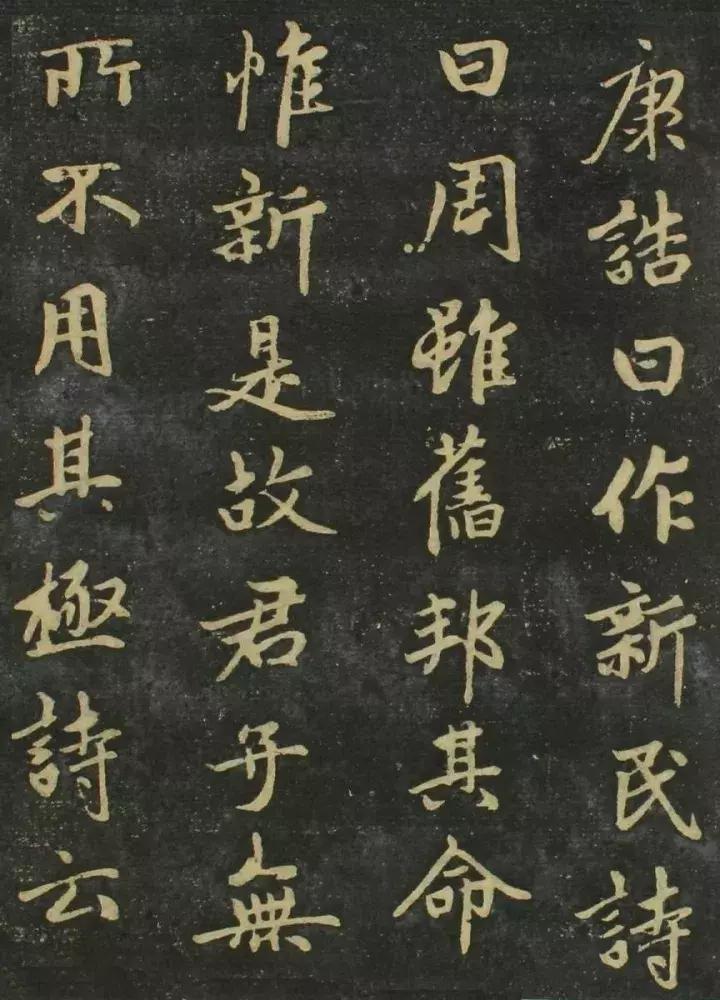 康誥曰作新民詩
曰周雖舊邦其命
惟新是故君子無
所不用其極詩云